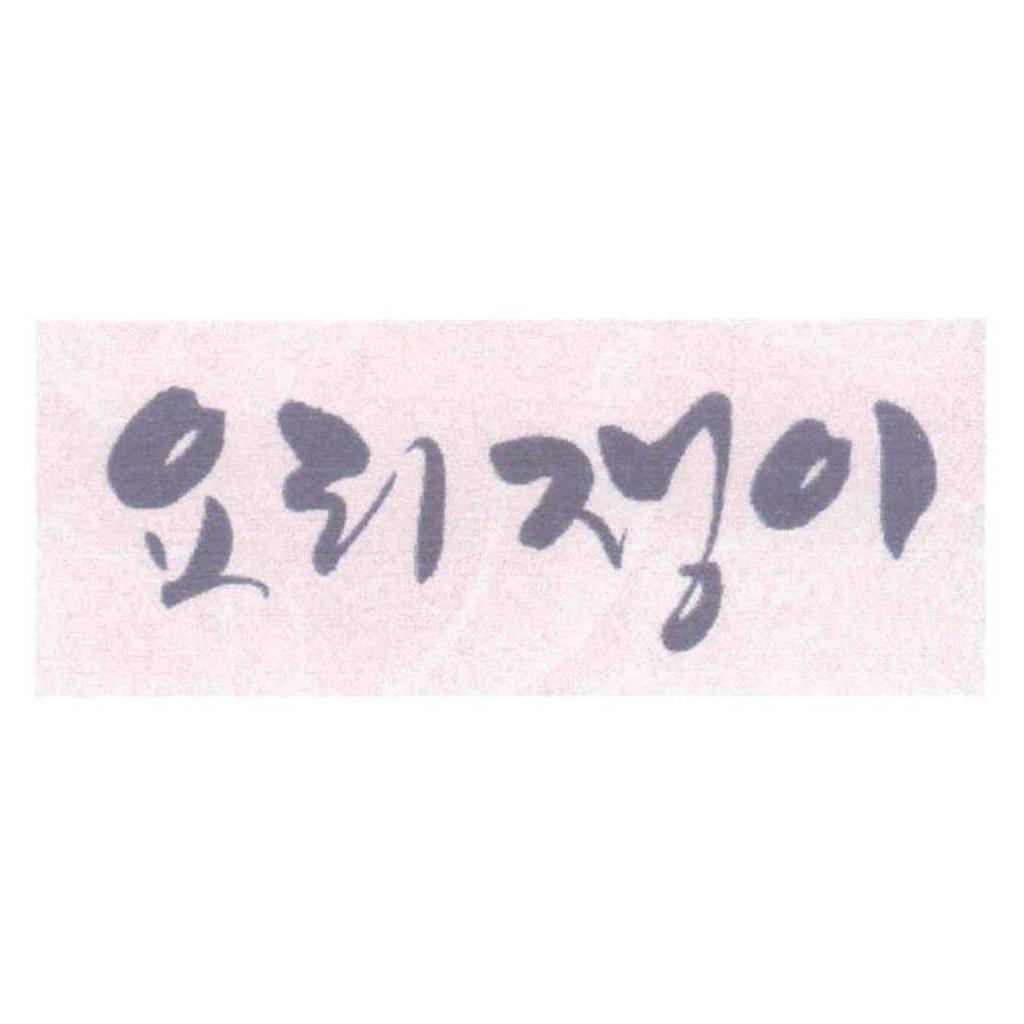 요리쟁이